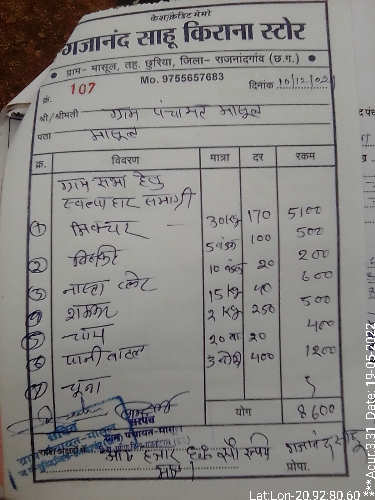 केश/क्रेडिट मेमो
गजानंद साहू किराना स्टोर
ग्राम- मासूल, तह. छुरिया, जिला- राजनांदगांव (छ.ग.)
Mo. 9755657683
क्र. 107 दिनांक 10/12/02
श्री/श्रीमती ग्राम पंचायत मासूल
पता मासूल
क्र. विवरण मात्रा दर रकम
ग्राम सभा हेतु
स्वल्पाहार सामाग्री
① मिक्चर 30 kg 170 5100
② बिस्कीट 5 100 500
③ नास्ता प्लेट 10 20 200
④ शक्कर 15 kg 40 600
⑤ चाय 2 kg 250 500
⑥ पानी 20 20 400
⑦ चूना 3 400 1200
योग 8600
सचिव
सरपंच
आठ हजार छः सौ रूपये
गजानंद साहू
प्रोपा.
Lat:Lon-20.92:80.60
***Acur:3.31, Date: 19-05-2022